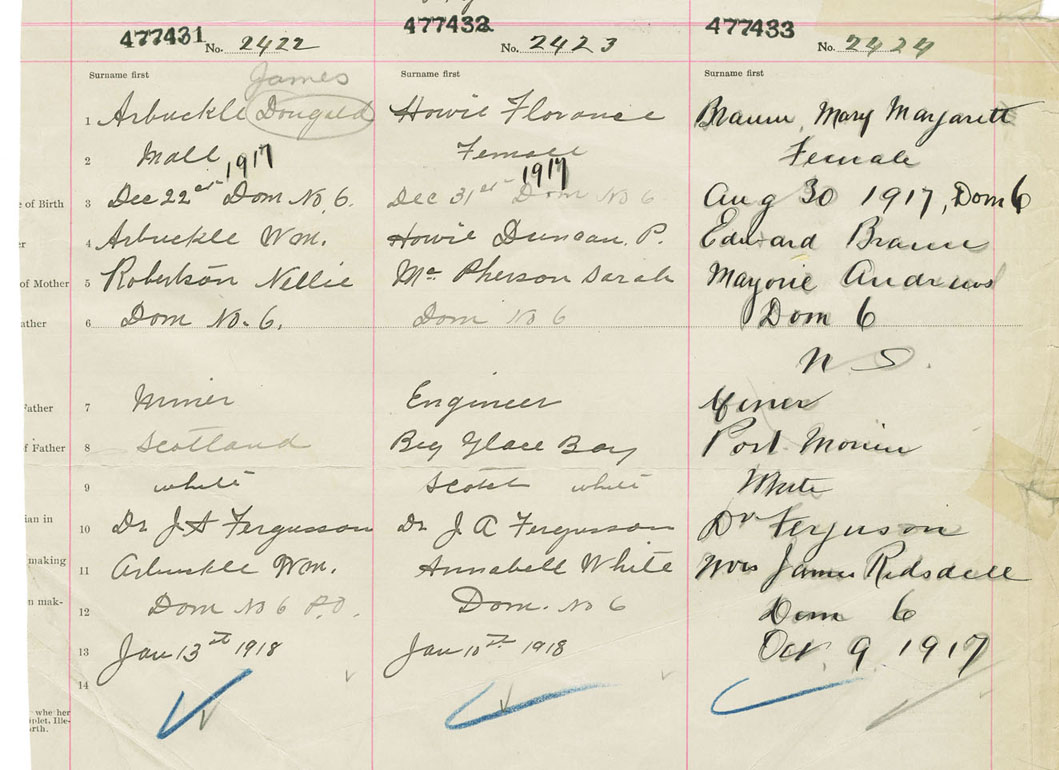 477431 No. 2422
477432 No. 2423
477433 No. 2424
Surname first James
Surname first
Surname first
1 Arbuckle Dougald
Howie Florance
Braun, Mary Margarett
2 Mall
Female
Female
1917
1917
e of Birth 3 Dec 22nd Dom No. 6.
Dec 31st Dom No 6
Aug 30 1917, Dom 6
er 4 Arbuckle Wm.
Howie Duncan. P.
Edward Braun
of Mother 5 Robertson Nellie
Mc Pherson Sarah
Marjorie Andrews
ather 6 Dom No. 6.
Dom No 6
Dom 6
N S.
Father 7 Miner
Engineer
Miner
f Father 8 Scotland
Big Glace Bay
Port Morien
9 white
Scotch white
White
ian in 10 Dr J. A Fergusson
Dr J. A Fergusson
Dr Ferguson
making 11 Arbuckle Wm.
Annabell White
Mrs James Redsdell
n mak- 12 Dom No 6 P.O.
Dom. No 6
Dom 6
13 Jan 13th 1918
Jan 10th 1918
Oct. 9 1917
14
whe her
plet, Ille-
rth.